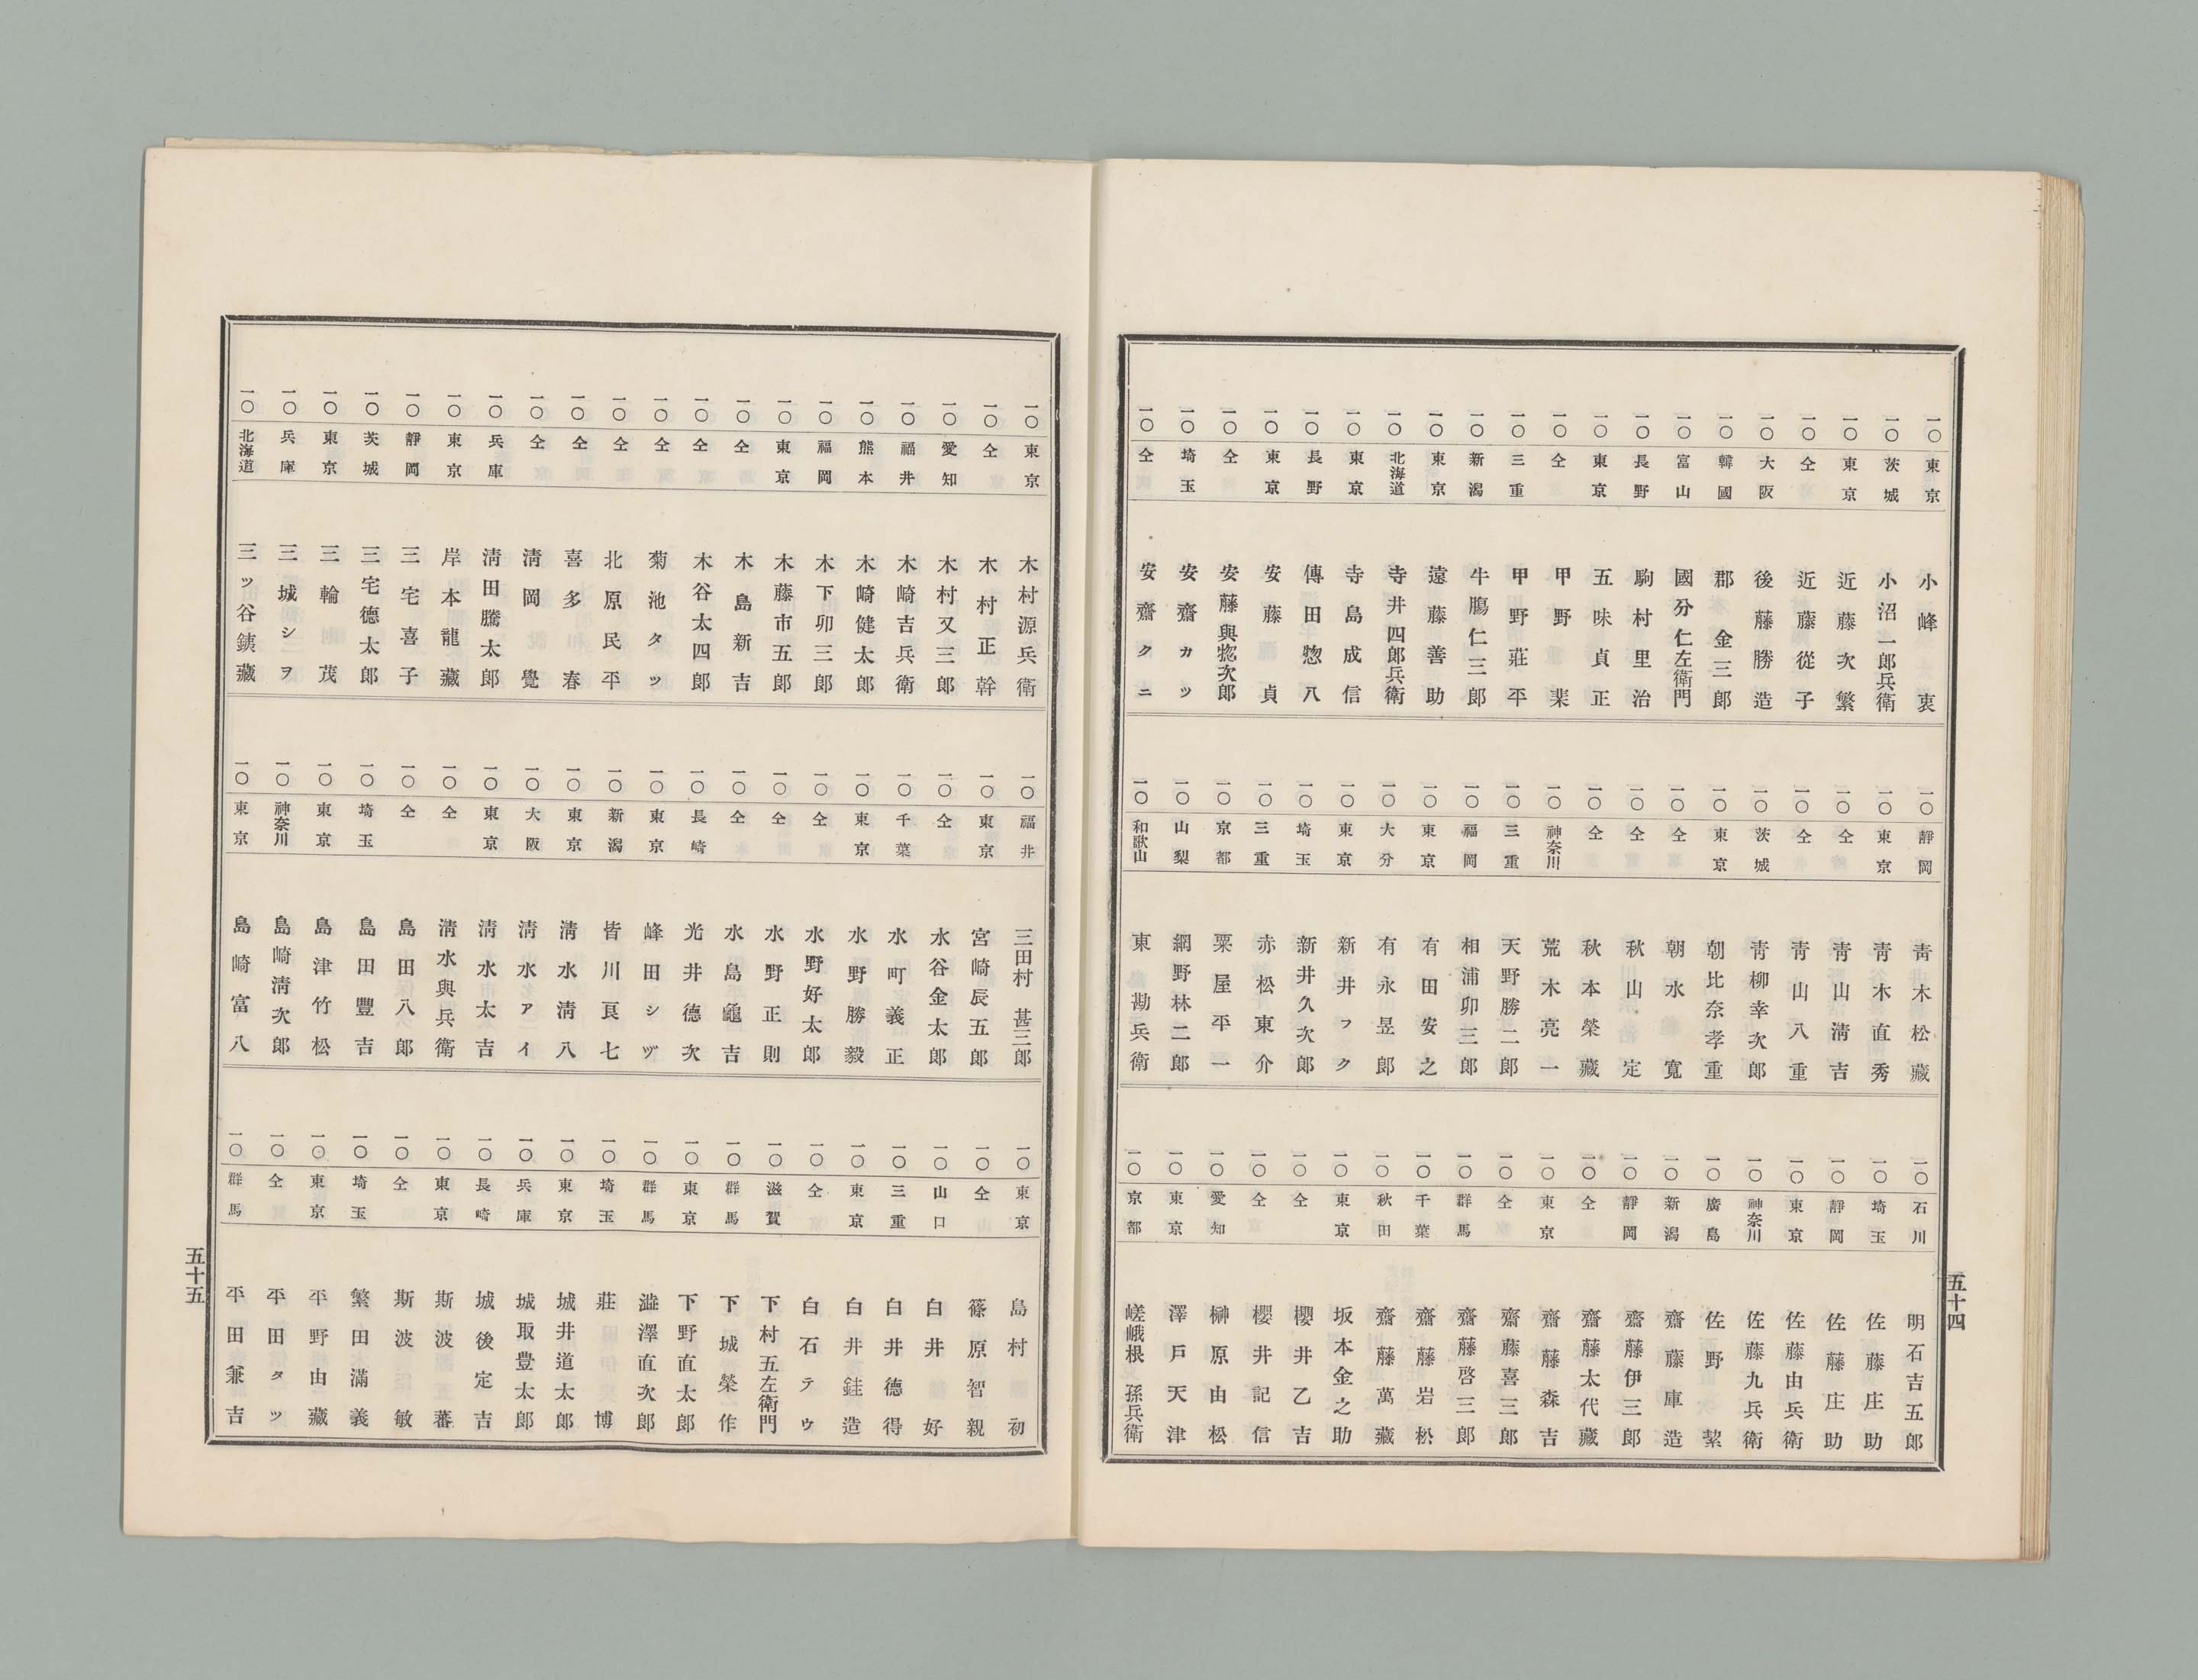 一〇 東京 小峰衷
一〇 茨城 小沼一郎兵衛
一〇 東京 近藤次繁
一〇 仝 近藤從子
一〇 大阪 後藤勝造
一〇 韓國 郡金三郎
一〇 富山 國分仁左衛門
一〇 長野 駒村里治
一〇 東京 五味貞正
一〇 仝 甲野棐
一〇 三重 甲野莊平
一〇 新潟 牛膓仁三郎
一〇 東京 遠藤善助
一〇 北海道 寺井四郎兵衛
一〇 東京 寺島成信
一〇 長野 傳田惣八
一〇 東京 安藤貞
一〇 仝 安藤與惣次郎
一〇 埼玉 安齋カツ
一〇 仝 安齋クニ
一〇 靜岡 靑木松藏
一〇 東京 靑木直秀
一〇 仝 靑山淸吉
一〇 仝 靑山八重
一〇 茨城 靑柳幸次郎
一〇 東京 朝比奈孝重
一〇 仝 朝水寬
一〇 仝 秋山定
一〇 仝 秋本榮藏
一〇 神奈川 荒木亮一
一〇 三重 天野勝二郎
一〇 福岡 相浦卯三郎
一〇 東京 有田安之
一〇 大分 有永昱郎
一〇 東京 新井フク
一〇 埼玉 新井久次郎
一〇 三重 赤松東介
一〇 京都 粟屋平一
一〇 山梨 網野林二郎
一〇 和歌山 東勘兵衛
一〇 石川 明石吉五郎
一〇 埼玉 佐藤庄助
一〇 靜岡 佐藤庄助
一〇 東京 佐藤由兵衛
一〇 神奈川 佐藤九兵衛
一〇 廣島 佐野㓗
一〇 新潟 齋藤庫造
一〇 靜岡 齋藤伊三郎
一〇 仝 齋藤太代藏
一〇 東京 齋藤森吉
一〇 仝 齋藤喜三郎
一〇 群馬 齋藤啓三郎
一〇 千葉 齋藤岩松
一〇 秋田 齋藤萬藏
一〇 東京 坂本金之助
一〇 仝 櫻井乙吉
一〇 仝 櫻井記信
一〇 愛知 榊原由松
一〇 東京 澤戶天津
一〇 京都 嵯峨根孫兵衛
五十四
一〇 東京 木村源兵衛
一〇 仝 木村正幹
一〇 愛知 木村又三郎
一〇 福井 木崎吉兵衛
一〇 熊本 木崎健太郎
一〇 福岡 木下卯三郎
一〇 東京 木藤市五郎
一〇 仝 木島新吉
一〇 仝 木谷太四郎
一〇 仝 菊池タツ
一〇 仝 北原民平
一〇 仝 喜多春
一〇 仝 淸岡覺
一〇 兵庫 淸田騰太郎
一〇 東京 岸本龍藏
一〇 靜岡 三宅喜子
一〇 茨城 三宅德太郎
一〇 東京 三輪茂
一〇 兵庫 三城シヲ
一〇 北海道 三ッ谷銕藏
一〇 福井 三田村甚三郎
一〇 東京 宮崎辰五郎
一〇 仝 水谷金太郎
一〇 千葉 水町義正
一〇 東京 水野勝毅
一〇 仝 水野好太郎
一〇 仝 水野正則
一〇 仝 水島龜吉
一〇 長崎 光井德次
一〇 東京 峰田シヅ
一〇 新潟 皆川亙七
一〇 東京 淸水淸八
一〇 大阪 淸水アイ
一〇 東京 淸水太吉
一〇 仝 淸水與兵衛
一〇 仝 島田八郎
一〇 埼玉 島田豐吉
一〇 東京 島津竹松
一〇 神奈川 島崎淸次郎
一〇 東京 島崎富八
一〇 東京 島村初
一〇 仝 篠原智親
一〇 山口 白井好
一〇 三重 白井德得
一〇 東京 白井銈造
一〇 仝 白石テウ
一〇 滋賀 下村五左衛門
一〇 群馬 下城榮作
一〇 東京 下野直太郎
一〇 群馬 澁澤直次郎
一〇 埼玉 莊博
一〇 東京 城井道太郎
一〇 兵庫 城取豊太郎
一〇 長崎 城後定吉
一〇 東京 斯波蕃
一〇 仝 斯波敏
一〇 埼玉 繁田滿義
一〇 東京 平野由藏
一〇 仝 平田タツ
一〇 群馬 平田兼吉
五十五